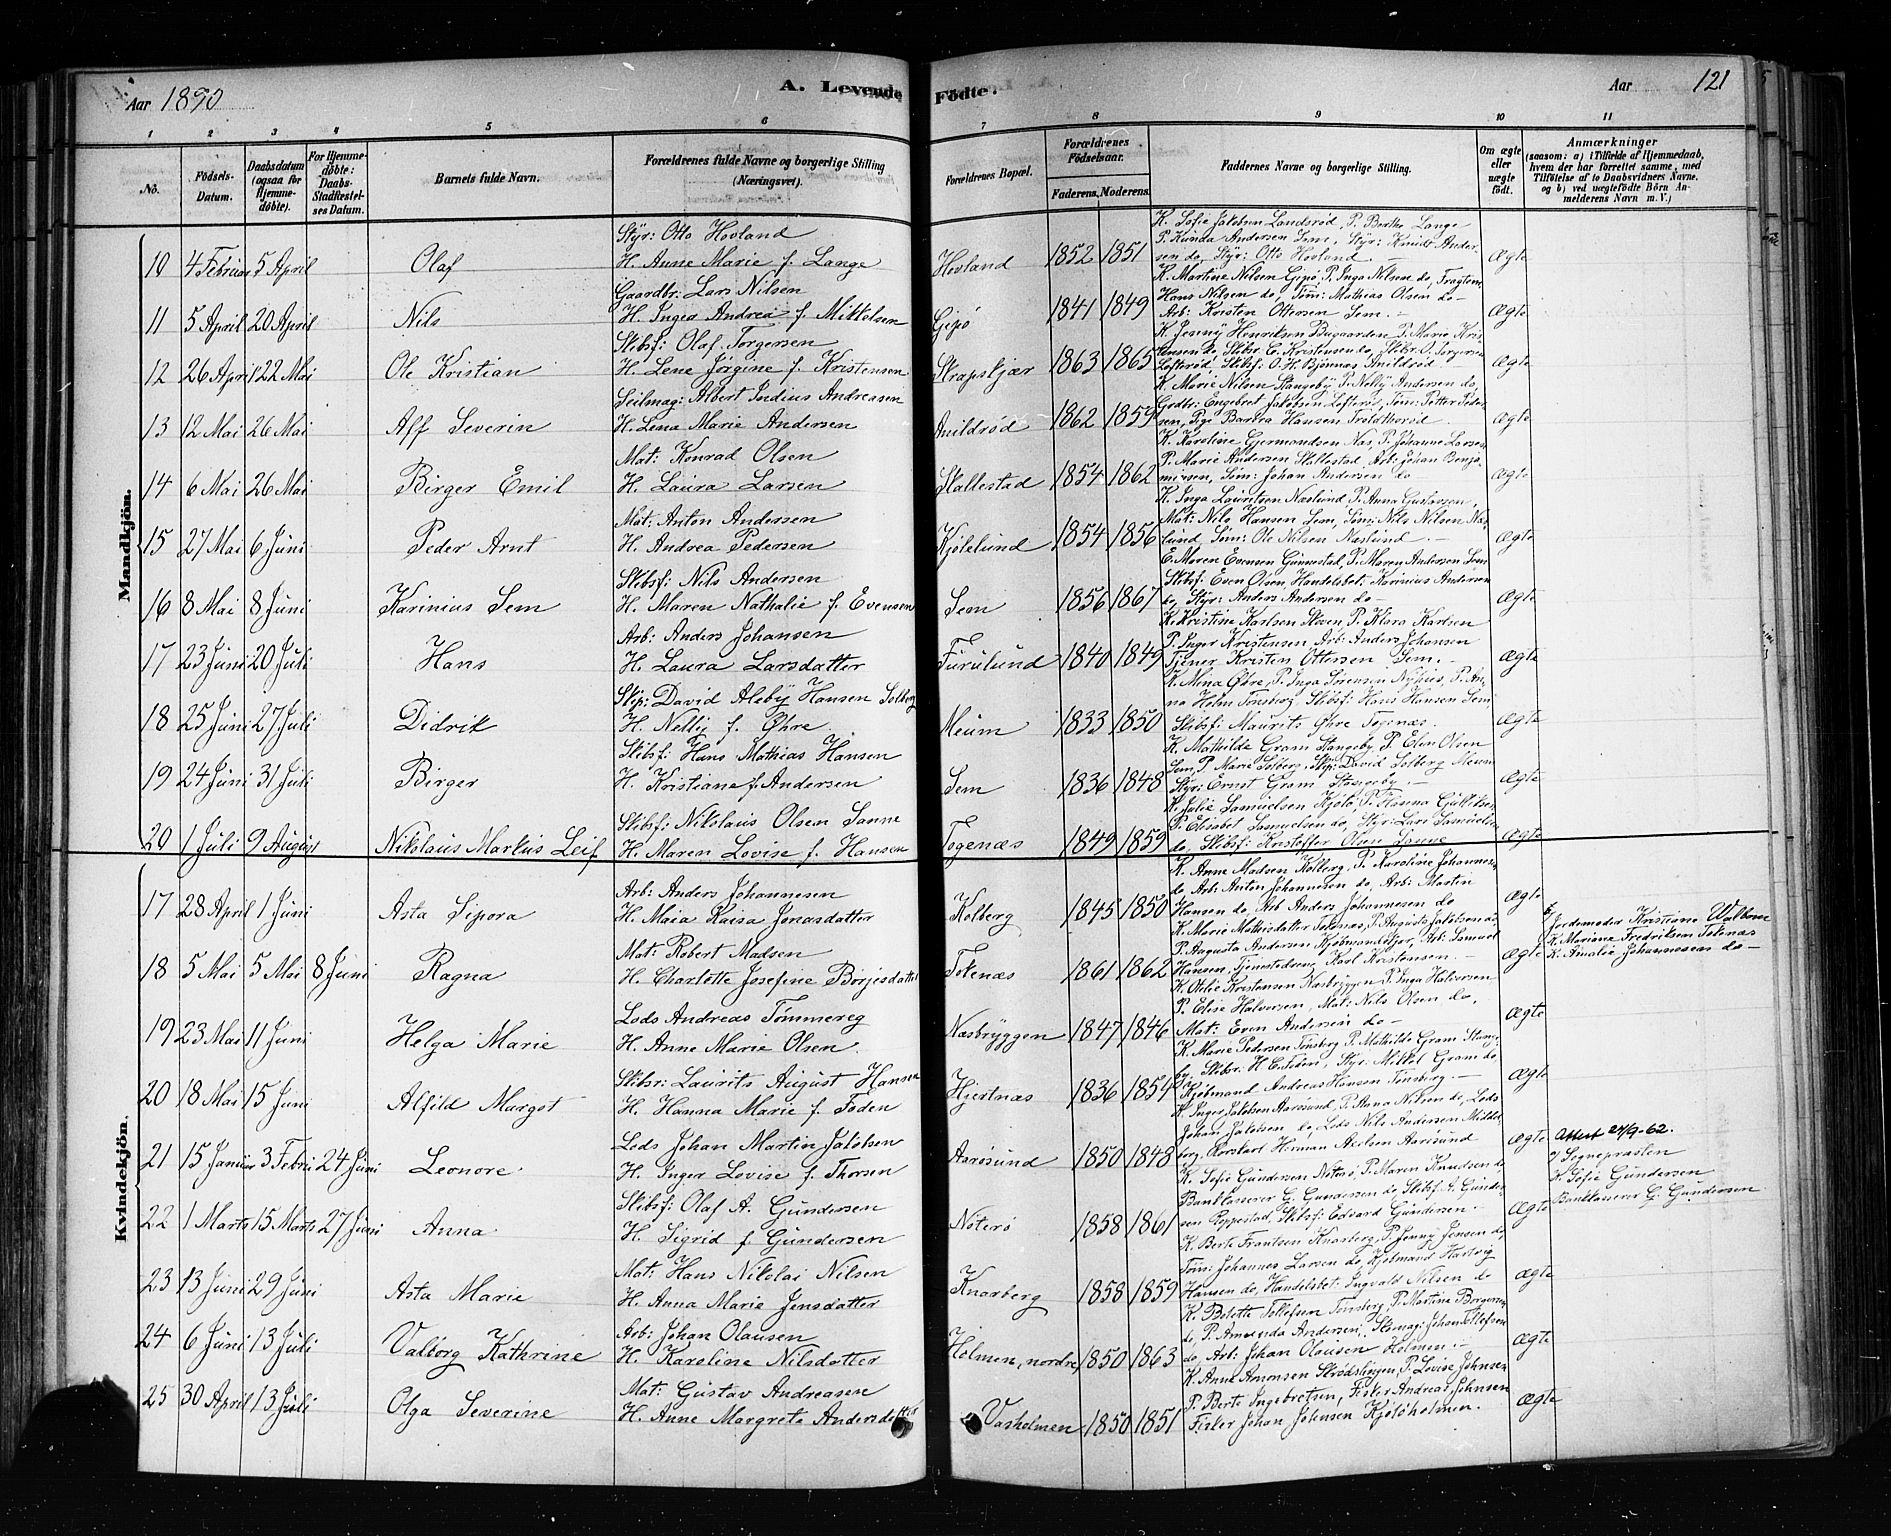 Aar 1890
A. Levende Fødte.
Aar 121
1 2 3 4 5 6 7 8 9 10 11
No.
Fødsels-Datum.
Daabsdatum (ogsaa for Hjemmedøbte).
For Hjemmedøbte: Daabs-Stadfæstelses Datum.
Barnets fulde Navn.
Forældrenes fulde Navne og borgerlige Stilling (Næringsvei).
Forældrenes Bopæl.
Forældrenes Fødselsaar.
Faderens. Moderens.
Faddernes Navne og borgerlige Stilling.
Om ægte eller uægte født.
Anmærkninger
(saasom: a) i Tilfælde af Hjemmedaab, hvem der har forrettet samme, med Tilføielse af to Daabsvidners Navne, og b) ved uægtefødte Børn Anmelderens Navn m. V.)
Mandkjøn.
10 4 Februar 5 April Olaf Styr: Otto Hovland H. Anne Marie f. Lange Hovland 1852 1851 K. Sofie Jakobsen Landsrød, P. Berthe Lange P. Kunda Andersen Sem, Styr: Knudt Andersen do, Styr: Otto Hovland.— Ægte
11 5 April 20 April Nils Gaardbr: Lars Nilsen H. Inger Andrea f. Mikkelsen Gipø 1841 1849 K. Martine Nilsen Gipø, P. Inga Nilsen do, Hans Nilsen do, Tøm: Mathias Olsen do— Arb: Kristen Ottersen Sem.— Ægte
12 26 April 22 Mai Ole Kristian Skibsf: Olaf Torgersen H. Lene Jörgine f. Kristensen Skrapskjær 1863 1865 K. Jenny Henriksen Bugaarden, P. Marie Kristensen do, Skibsr. C. Kristensen do, Skibsr. O. Torgersen Løfterød, Skibsf: O. H. Bjønnæs Anildrød— Ægte
13 12 Mai 26 Mai Alf Severin Seilmag: Albert Indius Andreasen H. Lena Marie Andersen Anildrød 1862 K. Marie Nilsen Stangeby, P. Nelly Andersen do, Godbr: Engebret Jakobsen Løfterød, Tøm: Petter Pedersen, Pige Barbra Hansen Ægte
14 6 Mai 26 Mai Birger Emil Mat: Konrad Olsen H. Laura Larsen Skallestad 1854 1862 K. Karoline Gjermundsen Næs, P. Johanne Larsen P. Marie Andersen Skallestad, Arb: Johan Benjaminsen, Tøm: Johan Andersen do Ægte
15 27 Mai 6 Juni Peder Arnt Mat: Anton Andersen H. Andrea Pedersen Kjølelund 1854 1856 K. Inga Lauritsen Næslund, P. Anna Gustavsen, Mat: Nils Hansen Sem, Tøm: Nils Nilsen Næslund, Tøm: Ole Nilsen Næslund.— Ægte
16 8 Mai 8 Juni Karinius Sem Skibsf: Nils Andersen H. Maren Nathalie f. Evensen Sem 1856 1867 E. Maren Evensen Gunnestad, P. Maren Andersen Sem Skibsf: Even Olsen, Handelsbet: Karinius Andersen do, Styr: Anders Andersen do— Ægte
17 23 Juni 20 Juli Hans Arb: Anders Johansen H. Laura Larsdatter Furulund 1840 1849 K. Kristine Karlsen Skoven, P. Klara Karlsen P. Inger Kristensen, Arb: Anders Johansen Tjener Kristen Ottersen Sem.— Ægte
18 25 Juni 27 Juli Didrik Skip: David Aleby Hansen Solberg H. Nelly f. Øhre Meum 1833 1850 K. Mina Øhre, P. Inga Sørensen Nyhus, P. Anna Holm Tønsberg, Skibsf: Hans Hansen Sem Skibsf: Maurits Øhre Togenæs. Ægte
19 24 Juni 31 Juli Birger Skibsf: Hans Mathias Hansen H. Kristiane f. Andersen Sem 1836 1848 K. Mathilde Gram Stangeby, P. Elen Olsen Sem, P. Marie Solberg, Skip: David Solberg Meum Styr: Ernst Gram Stangeby.— Ægte
20 1 Juli 9 August Nikolaus Markus Leif Skibsf: Nikolaus Olsen Sanne H. Maren Lovise f. Hansen Togenæs 1849 1859 K. Julie Samuelsen Kjølø, P. Hanna Gulliksen P. Elisabet Samuelsen do, Styr: Lars Samuelsen do, Skibsf: Kristoffer Olsen Sanne Ægte
Kvindekjøn.
17 28 April 1 Juni Asta Sipora Arb: Anders Johannesen H. Maia Kaisa Jonasdatter Kolberg 1845 1850 K. Anne Madsen Kolberg, P. Karoline Johannesen do, Arb: Anton Johannesen do, Arb: Martin Hansen do, Arb Anders Johannesen do Ægte
18 5 Mai 5 Mai 8 Juni Ragna Mat: Robert Madsen H. Charlotte Josefine Börjesdatter Tokenæs 1861 1862 K. Marie Mathisdatter Tokenæs, P. Augusta Jakobsen do, P. Augusta Andersen, Arb: Samuel Hansen, Tjenestedreng Karl Kristensen.— Ægte Jordemoder Kristiane Walbom K. Mariane Fredriksen Tokenæs K. Amalie Johannesen do—
19 23 Mai 11 Juni Helga Marie Lods Andreas Tömmereg H. Anne Marie Olsen. Næsbryggen 1847 1846 K. Otilie Kristensen Næsbryggen P. Inga Halvorsen P. Elise Halvorsen, Mat: Nils Olsen do, Mat: Even Andersen do— Ægte
20 18 Mai 15 Juni Alfild Margot Skibsr: Laurits August Hansen H. Hanna Marie f. Foden Hjertnæs 1836 1854 K. Marie Pedersen Tønsberg P. Mathilde Gram Stangeby, Skibsr: H. C. Foden, Styr: Mikkel Gram do, Kjøbmand Andreas Hansen Tønsberg.— Ægte
21 15 Januar 3 Febru 24 Juni Leonore Lods Johan Martin Jakobsen H. Inger Lovise f. Thorsen Aarøsund 1850 1848 K. Inger Jakobsen Aarøsund, P. Anna Nilsen do, Lods Johan Jakobsen do, Lods Nils Andersen Middelborg, Herman Axelsen Aarøsund Ægte Attest 24/9-62.
22 1 Marts 15 Marts 27 Juni Anna Skibsf: Olaf A. Gundersen H. Sigrid f. Gundersen Nøterø 1858 1861 K. Sofie Gundersen Nøterø, P. Maren Knudsen do, Bankkasserer G. Gundersen do, Skibsf: A. Gundersen Roppestad, Skibsf: Edvard Gundersen.— Ægte Sognepresten K. Sofie Gundersen Bankkasserer G. Gundersen
23 13 Juni 29 Juni Asta Marie Mat: Hans Nikolai Nilsen H. Anna Marie Jensdatter Knarberg 1858 1859 K. Berte Frantsen Knarberg, P. Jenny Jensen do, Tøm: Johannes Larsen do, Kjøbmand Hartvig Hansen do, Handelsbet: Ingvald Nilsen do Ægte
24 6 Juni 13 Juli Valborg Kathrine Arb: Johan Olausen H. Karoline Nilsdatter Holmen, nordre 1850 1863 K. Bolette Tollefsen Tønsberg, P. Martina Borgersen do, P. Amanda Andersen, Skomag: Johan Tollefsen do, Arb: Johan Olausen Holmen.— Ægte
25 30 April 13 Juli Olga Severine Mat: Gustav Andreasen H. Anne Margrete Andersdatter Vasholmen 1850 1851 K. Anne Amonsen P. Lovise Johnsen P. Berte Ingebretsen, Fisker Andreas Johnsen Fisker Johan Johnsen Kjøløholmen. Ægte